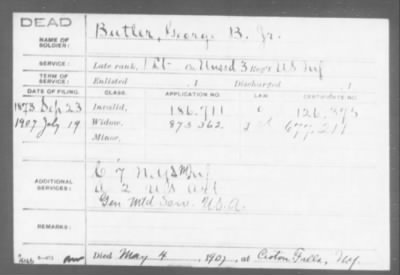 DEAD
NAME OF SOLDIER: Butler, George B. Jr.
SERVICE: Late rank, 1 Lt 3 Reg't U.S. Inf
TERM OF SERVICE: Enlisted , 1 Discharged , 1
DATE OF FILING. CLASS. APPLICATION NO. LAW CERTIFICATE NO.
1873 Sep 23 Invalid, 186.711 126.
1907 July 19 Widow, 873 362
Minor,
ADDITIONAL SERVICES: C 7 N.Y.
2 U.S. Art
Gen Mtd Serv. U.S.A.
REMARKS:
Died May 4, 1907, at Croton Falls, N.Y.